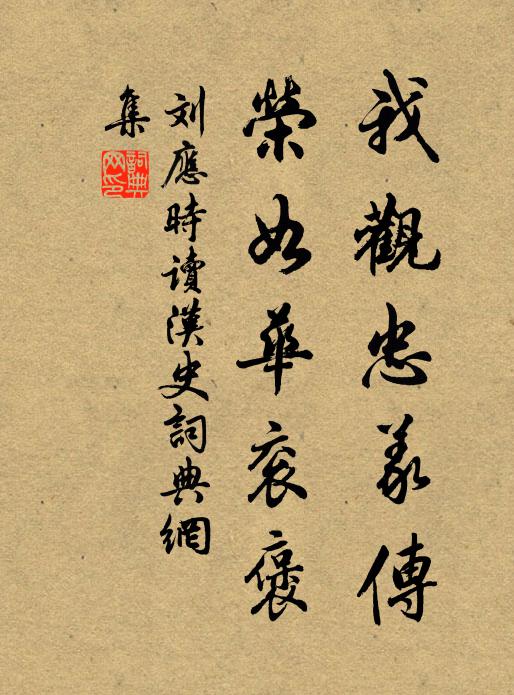 我觀忠義傳
榮如華衮褒
刘應時讀漢史詞典網
集
詞典網印